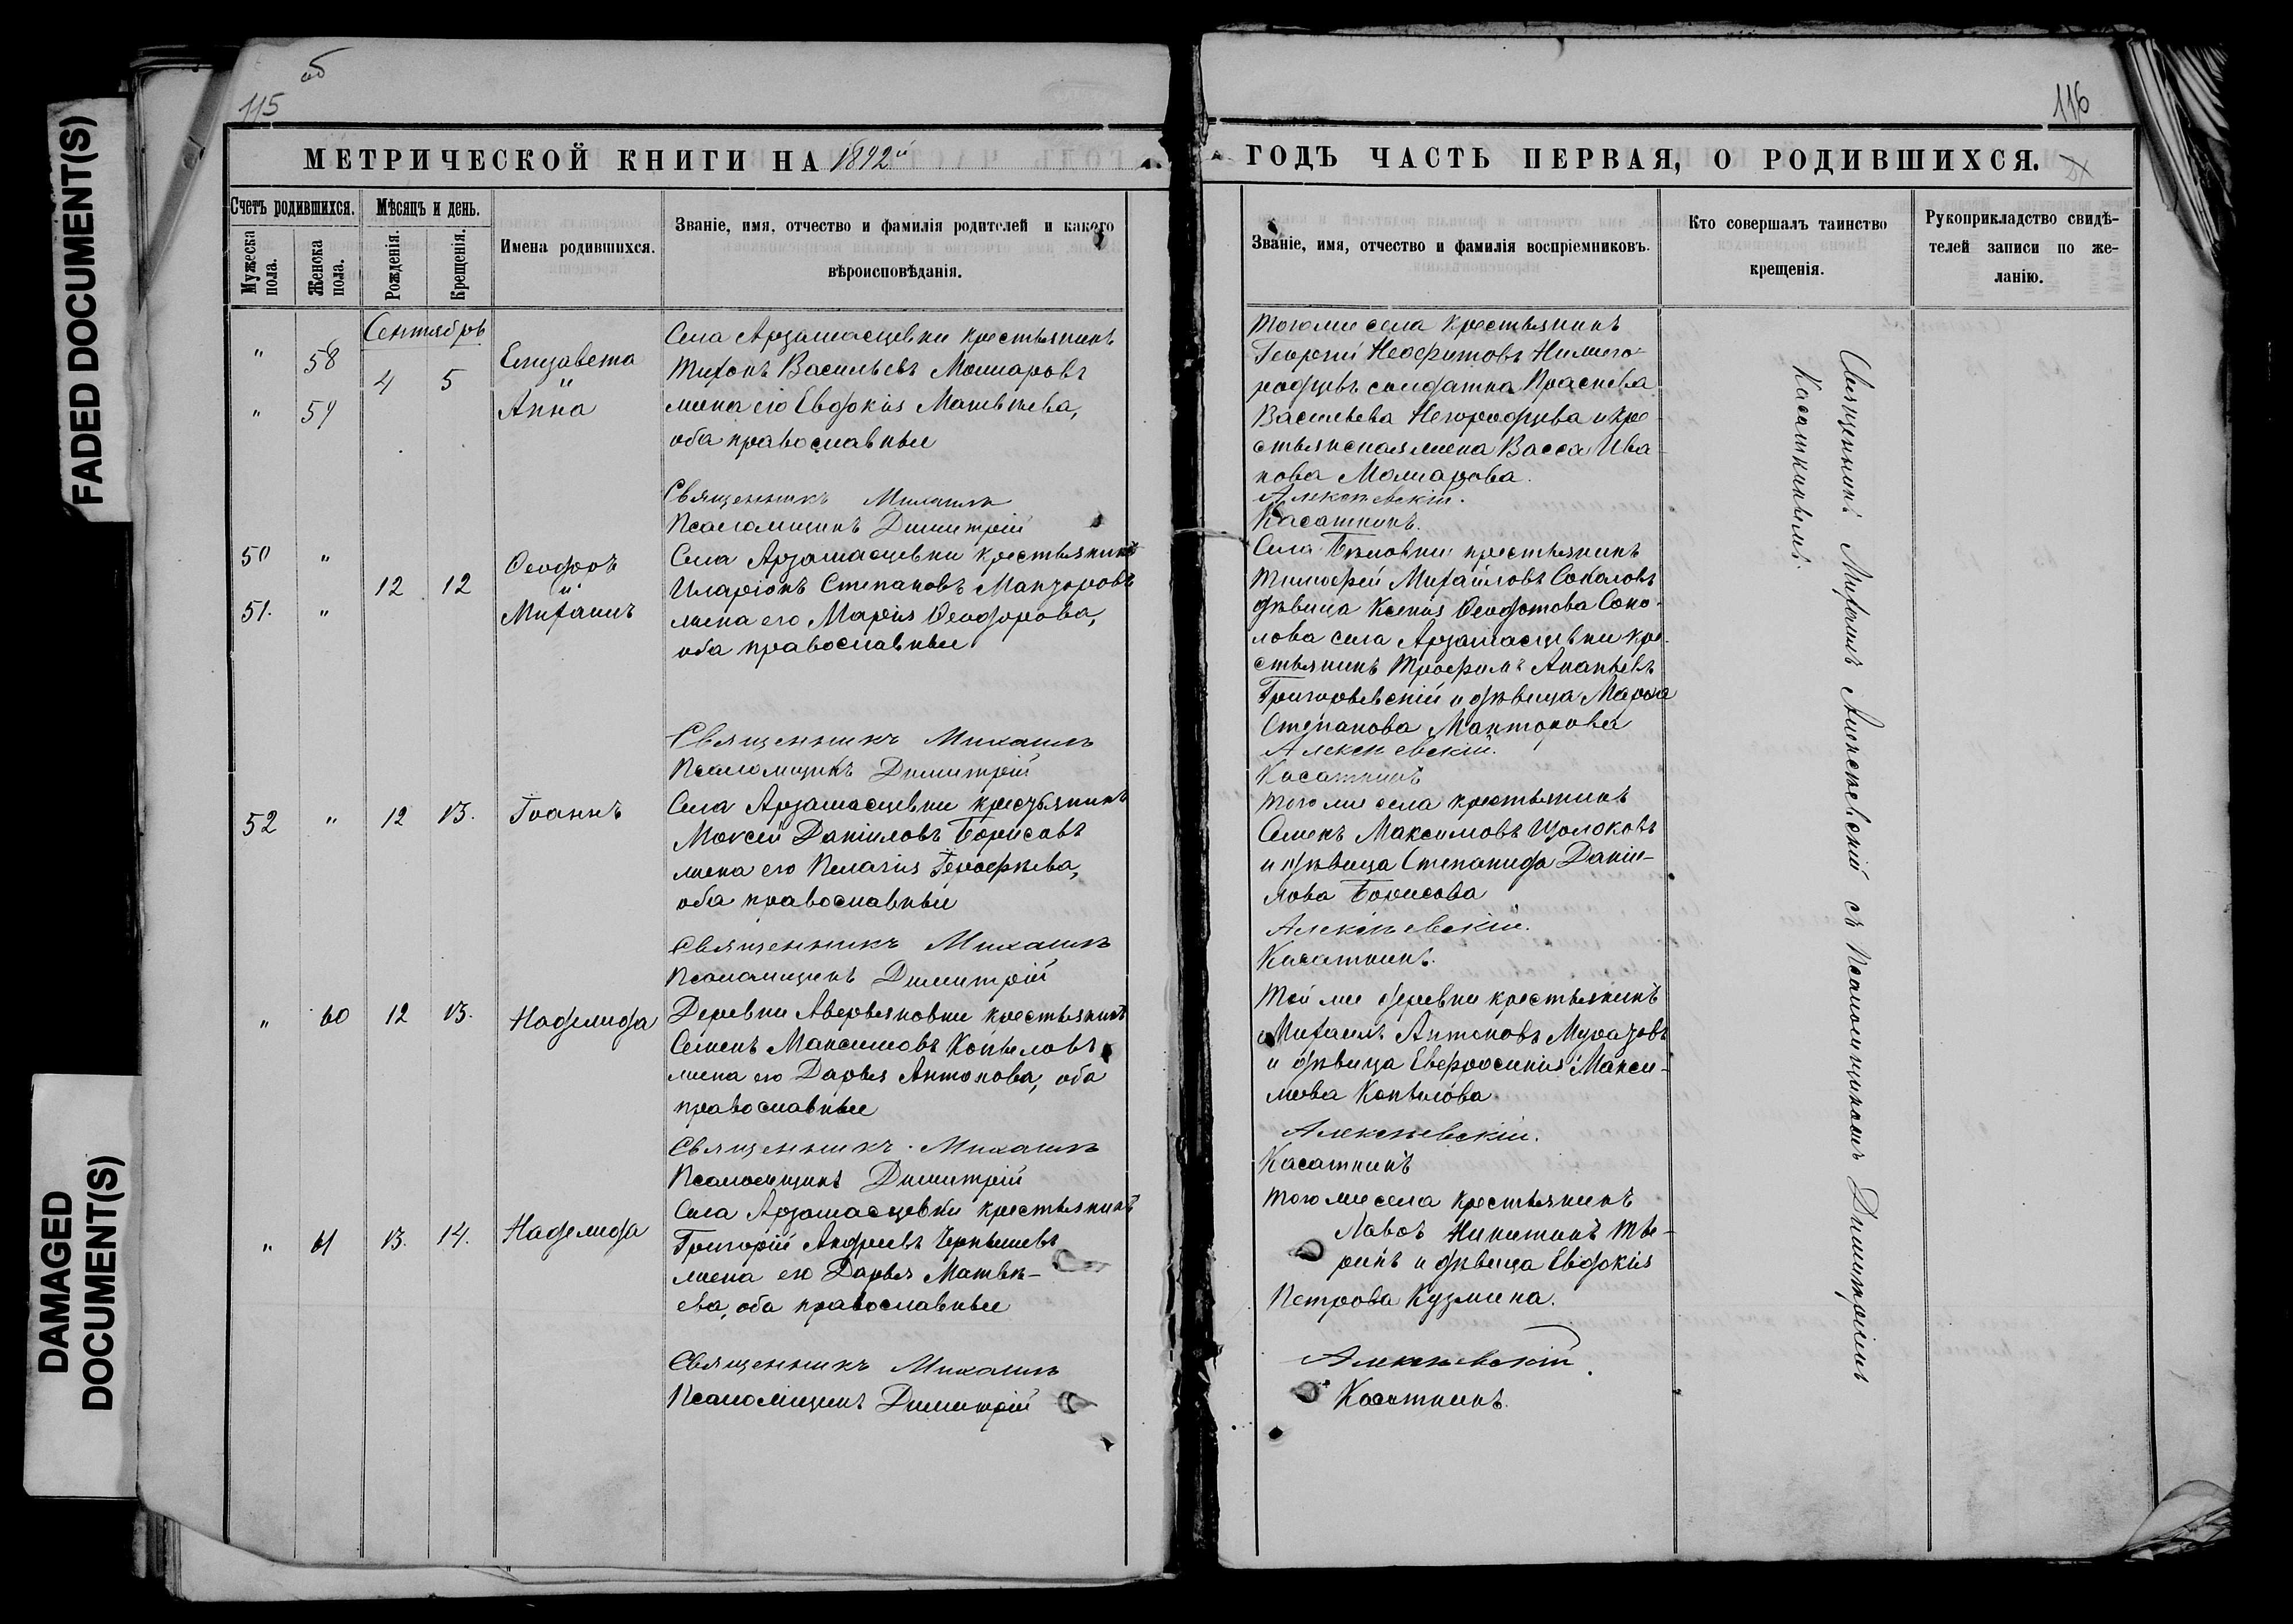 FADED DOCUMENT(S)
DAMAGED
DOCUMENT(S)
об
115
МЕТРИЧЕСКОЙ КНИГИ НА 1892й
Счетъ родившихся.
Мѣсяцъ и день.
Имена родившихся.
Званіе, имя, отчество и фамилія родителей и какого
вѣроисповѣданія.
Мужеска
пола.
Женска
пола.
Рожденія.
Крещенія.
Сентябрь
" 58 4 5 Елизавета
и
" 59 Анна
Села Арзамасцевки крестьянинъ
Тихонъ Васильевъ Комаровъ
жена его Евдокія Матвѣева,
оба православные
Священникъ Михаилъ
Псаломщикъ Димитрій
50 " 12 12 Ѳеодоръ
и
51. " Михаилъ
Села Арзамасцевки крестьянинъ
Иларіонъ Степановъ Манторовъ
жена его Марія Ѳеодорова,
оба православные
Священникъ Михаилъ
Псаломщикъ Димитрій
52 " 12 13. Іоаннъ
Села Арзамасцевки крестьянинъ
Моисей Даніиловъ Борисовъ
жена его Пелагія
оба православные
Священникъ Михаилъ
Псаломщикъ Димитрій
" 60 12 13. Надежда
Деревни Аверьяновки крестьянинъ
Семенъ Максимовъ Копыловъ
жена его Дарья Антонова, оба
православные
Священникъ Михаилъ
Псаломщикъ Димитрій
" 61 13. 14. Надежда
Села Арзамасцевки крестьянинъ
Григорій Андреевъ Чернышевъ
жена его Дарья Матвѣ-
ева, оба православные
Священникъ Михаилъ
Псаломщикъ Димитрій
116
ГОДЪ ЧАСТЬ ПЕРВАЯ, О РОДИВШИХСЯ.
Званіе, имя, отчество и фамилія воспріемниковъ.
Кто совершалъ таинство
крещенія.
Рукоприкладство свидѣ-
телей записи по же-
ланію.
того же села крестьянинъ
Георгій Неофитовъ Нижего-
родцевъ солдатка
Васильева и кре-
стьянская жена Васса Ива-
нова
Алексѣевскій.
Касаткинъ.
Села крестьянинъ
Тимофей Михайловъ Соколовъ
дѣвица Ксенія Ѳеодотова Соко-
лова села Арзамасцевки кре-
стьянинъ Трофимъ Ананьевъ
Григорьевскій и дѣвица
Степанова Манторова
Алексѣевскій.
Касаткинъ
того же села крестьянинъ
Семенъ Максимовъ
и дѣвица Степанида Даніи-
лова Борисова
Алексѣевскій.
Касаткинъ.
Той же деревни крестьянинъ
Михаилъ Антоновъ Муразовъ
и дѣвица Евфросинія Макси-
мова Копылова
Алексѣевскій.
Касаткинъ
того же села крестьянинъ
Никитинъ Тю-
ринъ и дѣвица Евдокія
Петрова Кузмина.
Алексѣевскій.
Касаткинъ.
Священникъ Михаилъ Алексѣевскій съ Псаломщикомъ Димитріемъ
Касаткинымъ.